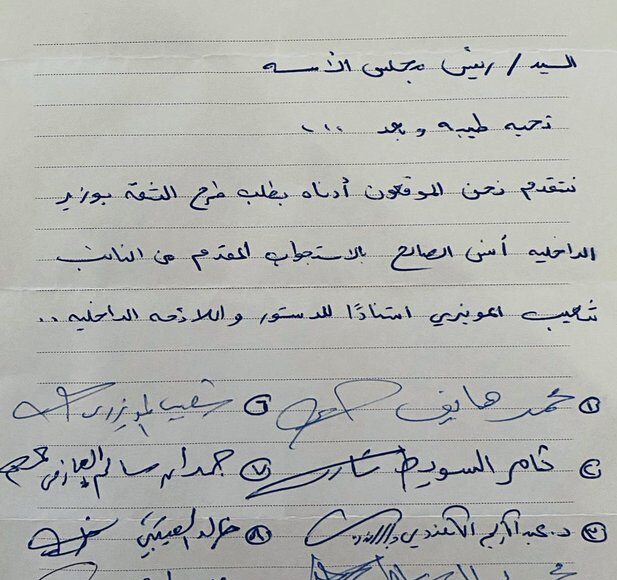 السيد / رئيس مجلس الأمه
تحيه طيبه وبعد ...
نتقدم نحن الموقعون أدناه بطلب طرح الثقة بوزير
الداخليه أنس الصالح بالاستجواب المقدم من النائب
شعيب المويزري استنادًا للدستور واللائحه الداخليه ..
١ محمد هايف
٦ شعيب المويزري
٢ ثامر السويط
٧ حمدان سالم العازمي
٣ د. عبدالكريم الكندري
٨ خالد العتيبي